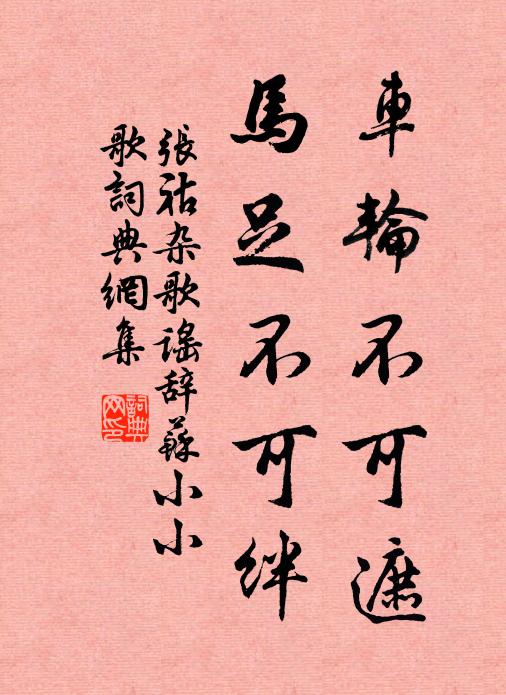 車輪不可遮
馬足不可絆
張祜杂歌谣辞蘇小小
歌詞典網集
詞典网印